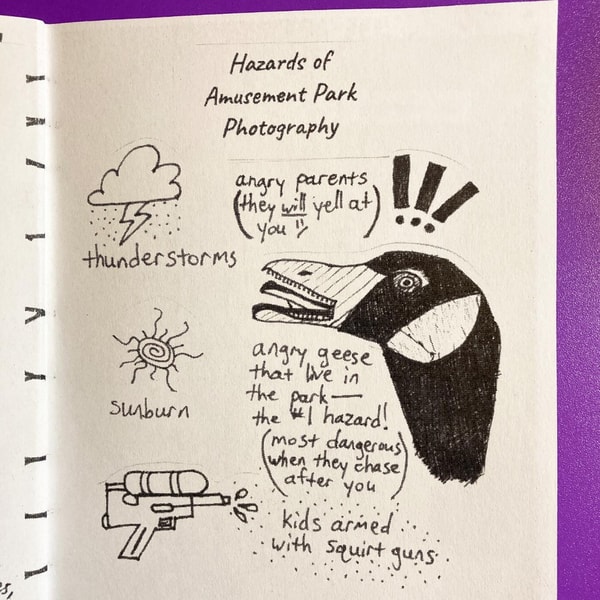 Hazards of
Amusement Park
Photography
angry parents
(they will yell at
you
!!!
thunderstorms
sunburn
angry geese
that live in
the park—
the #1 hazard!
(most dangerous
when they chase
after you)
kids armed
with squirt guns